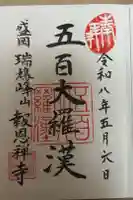 奉拝
令和八年五月六日
五百大羅漢
盛岡 瑞鳩峰山 報恩禅寺